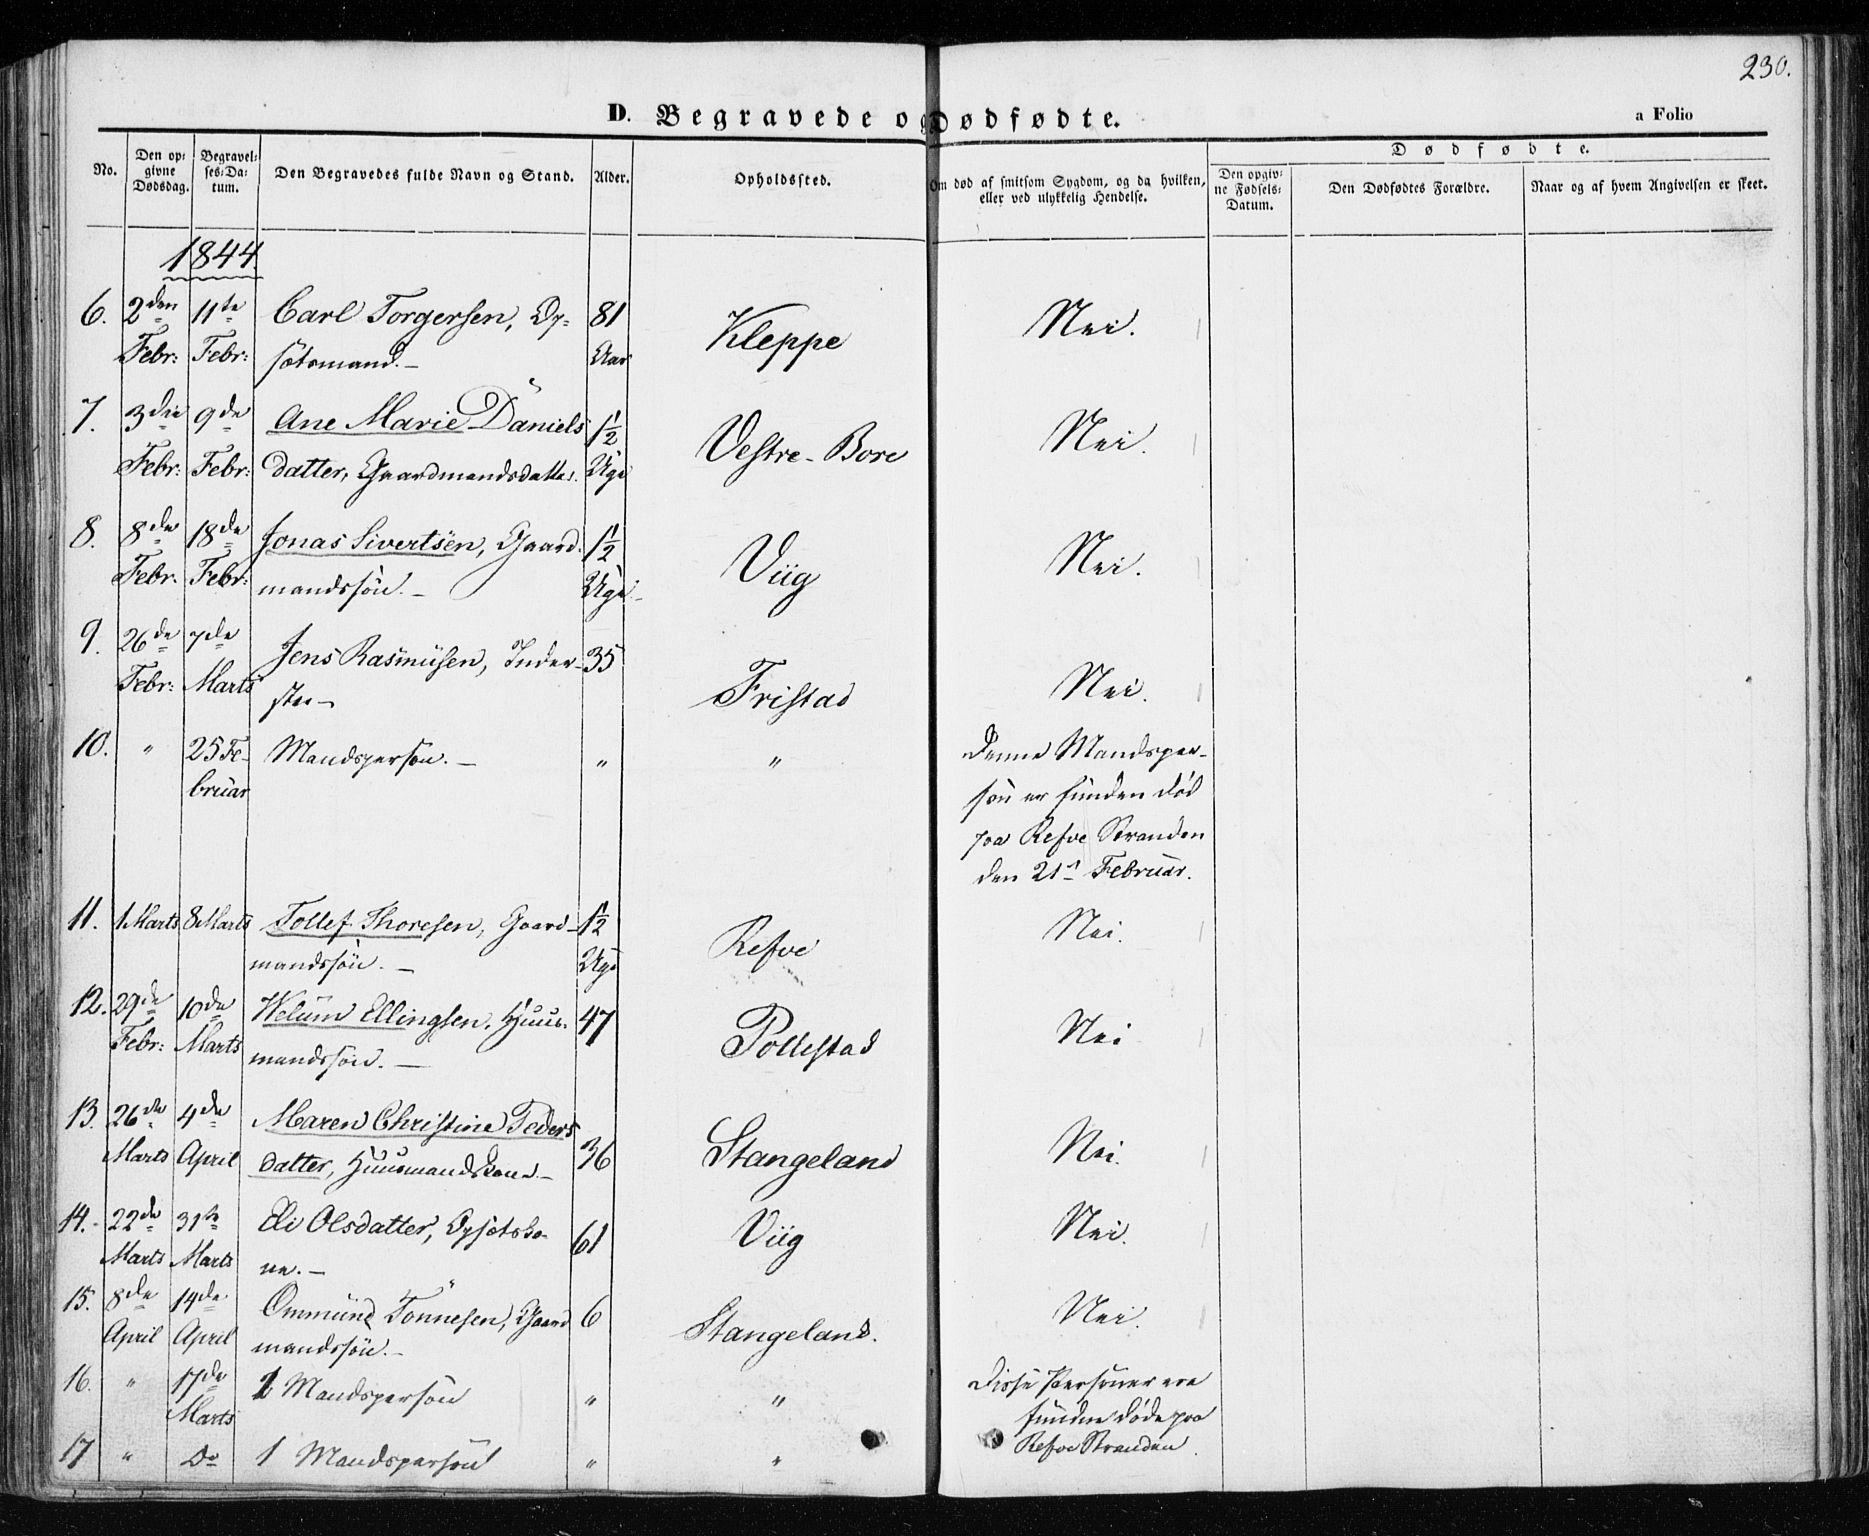 230.
D. Begravede og Dødfødte.
a Folio
No.
Den op-
givne
Dødsdag.
Begravel-
ses-Da-
tum.
Den Begravedes fulde Navn og Stand.
Alder.
Opholdssted.
Om død af smitsom Sygdom, og da hvilken,
eller ved ulykkelig Hendelse.
Dødfødte.
Den opgiv-
ne Fødsels-
Datum.
Den Dødfødtes Forældre.
Naar og af hvem Angivelsen er skeet.
1844
6. 2den 11te Carl Torgersen, Op- 81 Kleppe Nei.
Febr: Febr: sætsmand.– Aar
7. 3die 9de Ane Marie Daniels 1½ Vestre-Bore Nei.
Febr: Febr: datter, Gaardmandsdatter. Uge
8. 8de 18de Jonas Sivertsen, Gaard- 1½ Viig Nei.
Febr. Febr: mandssøn.– Uge.
9. 26de 7de Jens Rasmusen, Inder- 35 Fristad Nei.
Febr: Marts ster–
10. " 25 Fe- Mandsperson.– " " Denne Mandsper-
bruar son er funden død
paa Refve Stranden
den 21de Februar.
11. 1 Marts 8 Marts Tollef Thoresen, Gaard- 1½ Refve Nei.
mandssøn.– Uge
12. 29de 10de Welum Ellingsen, Huus- 47 Pollestad Nei
Febr: Marts mandssøn.–
13. 26de 4de Maren Christine Peders 36 Stangeland Nei.
Marts April datter, Huusmandskone.–
14. 22de 31te Eli Olsdatter, Opsætsko- 61 Viig Nei.
Marts Marts ne.–
15. 8de 14de Ommund Tønnesen, Gaard 6 Stangeland. Nei.
April April mandssøn.–
16. " 17de 1 Mandsperson " " Disse Personer ere
Marts fundne døde paa
17 " Do 1 Mandsperson " " Refve Stranden.